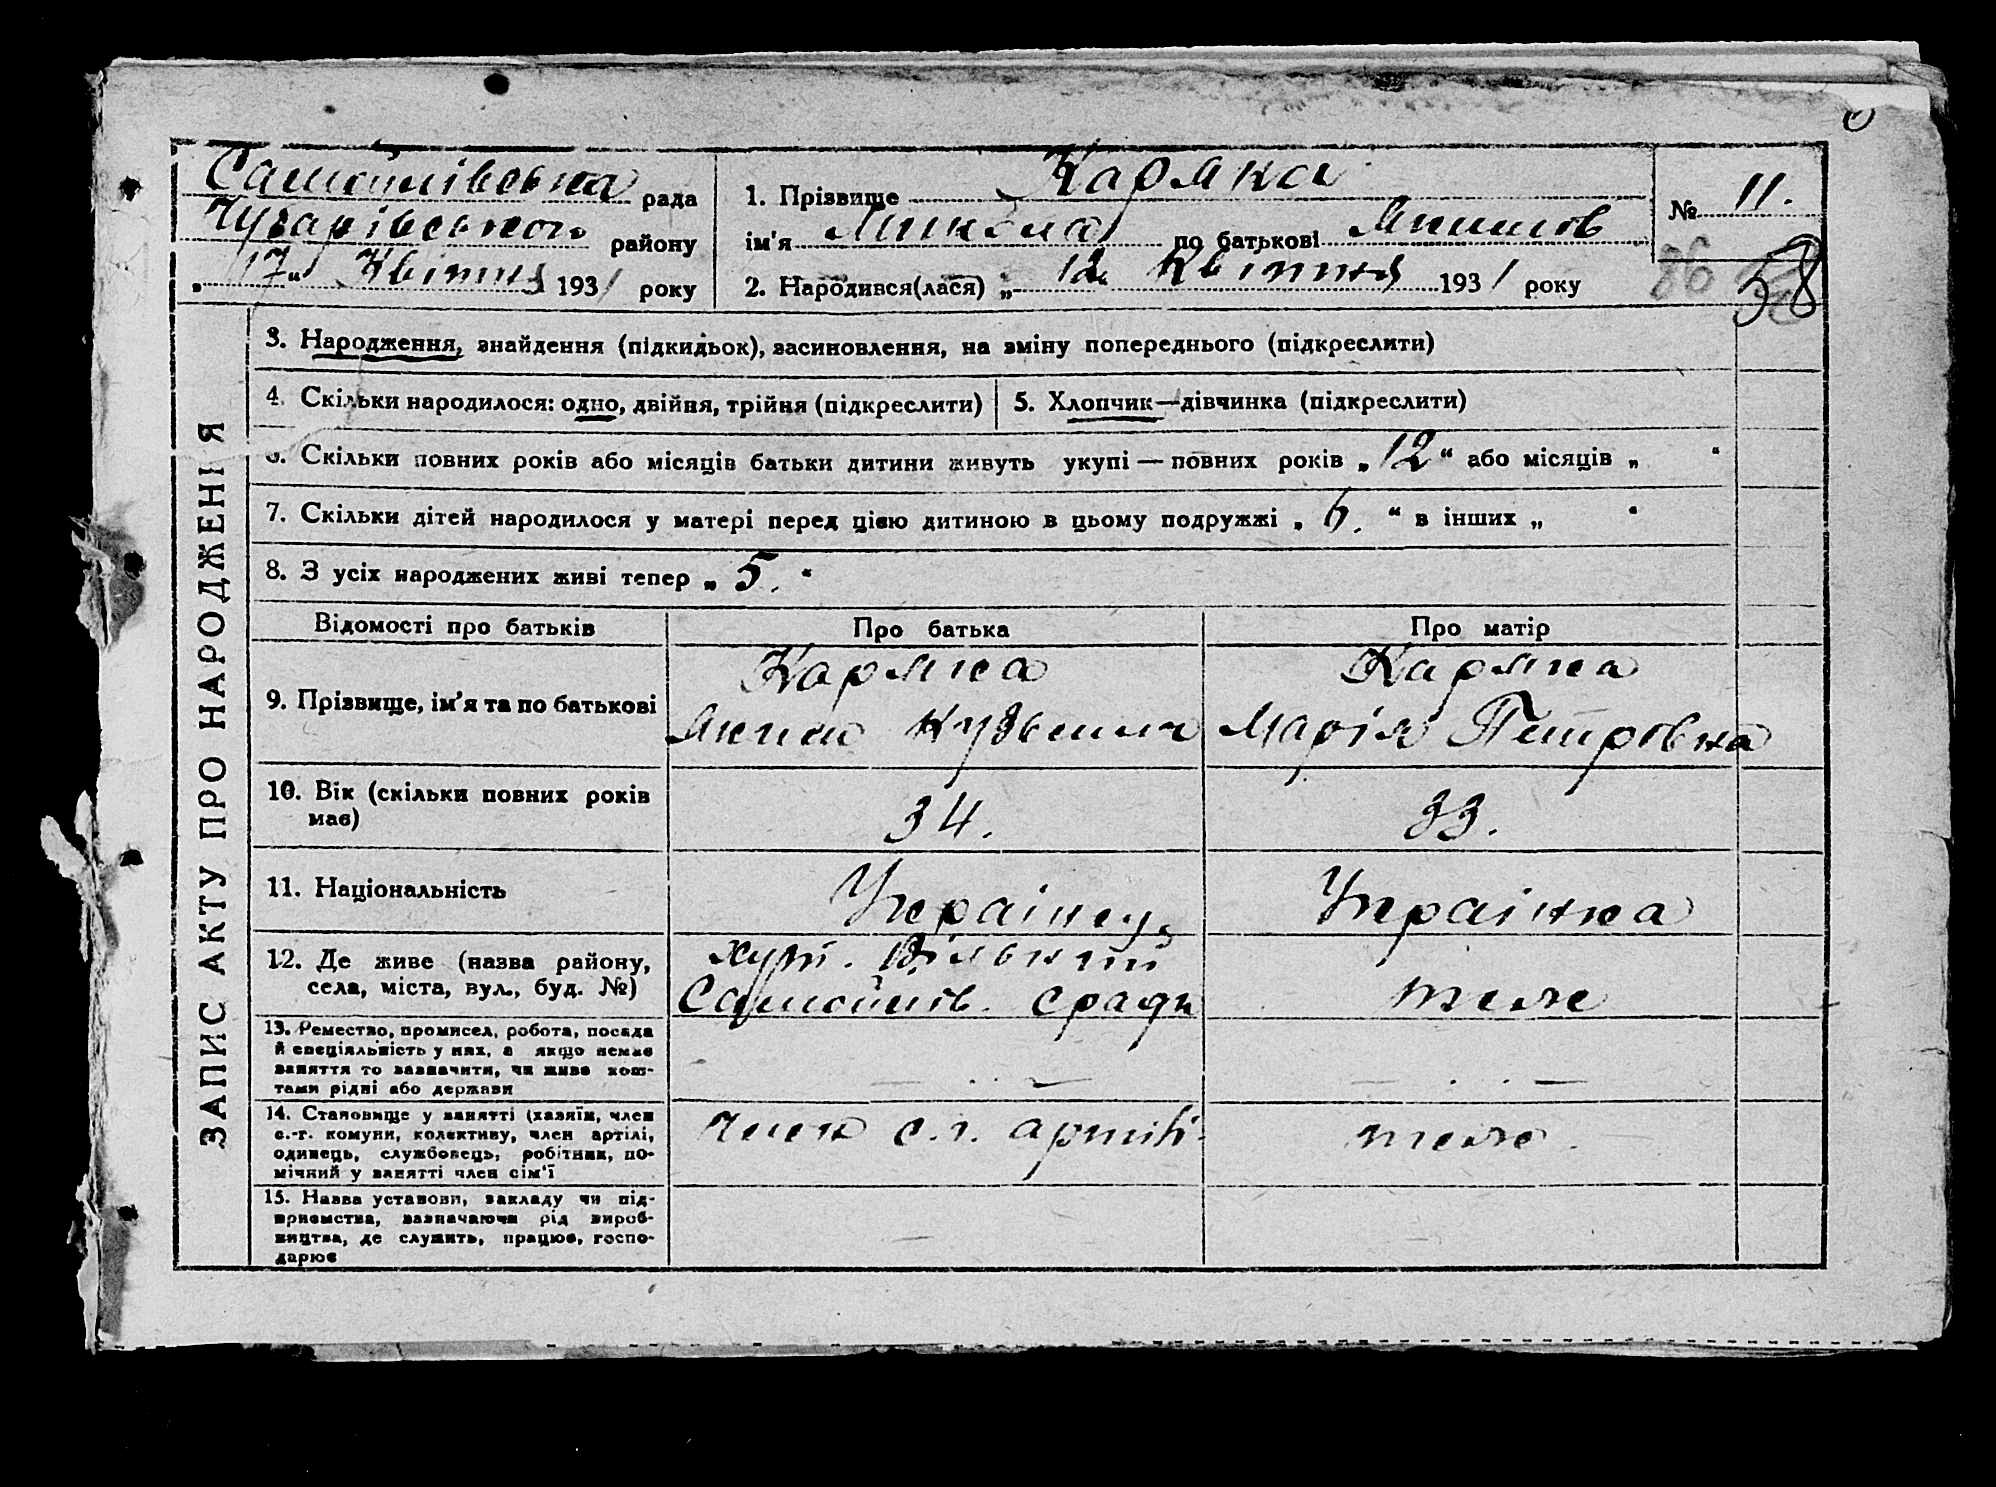 Самійлівська рада
Чубарівського району
„17“ Квітня 1931 року
1. Прізвище Каряка
ім'я Микола по батькові Якимов
2. Народився(лася) „12 Квітня 1931 року
№ 11.
86 58
3. Народження, знайдення (підкидьок), засиновлення, на зміну попереднього (підкреслити)
4. Скільки народилося: одно, двійня, трійня (підкреслити)
5. Хлопчик—дівчинка (підкреслити)
6. Скільки повних років або місяців батьки дитини живуть укупі — повних років „12“ або місяців „ “
7. Скільки дітей народилося у матері перед цією дитиною в цьому подружжі „6.“ в інших „ “
8. З усіх народжених живі тепер „5.“
ЗАПИС АКТУ ПРО НАРОДЖЕННЯ
Відомості про батьків Про батька Про матір
9. Прізвище, ім'я та по батькові
Каряка
Яким Кузьмич
Каряка
Марія Петровна
10. Вік (скільки повних років
має)
34.
33.
11. Національність
Українец
Українка
12. Де живе (назва району,
села, міста, вул., буд. №)
хут. Вільний
Самойлів. сради
теже
13. Ремество, промисел, робота, посада
й спеціяльність у них, а якщо немає
заняття то зазначити, чи живе кош-
тами рідні або держави
— . . —
— . . —
14. Становище у занятті (хазяїн, член
с.-г. комуни, колективу, член артілі,
одинець, службовець, робітник, по-
мічний у занятті член сім'ї
член с.г. артілі
теже.
15. Назва установи, закладу чи під-
приємства, зазначаючи рід вироб-
ництва, де служить, працює, госпо-
дарює